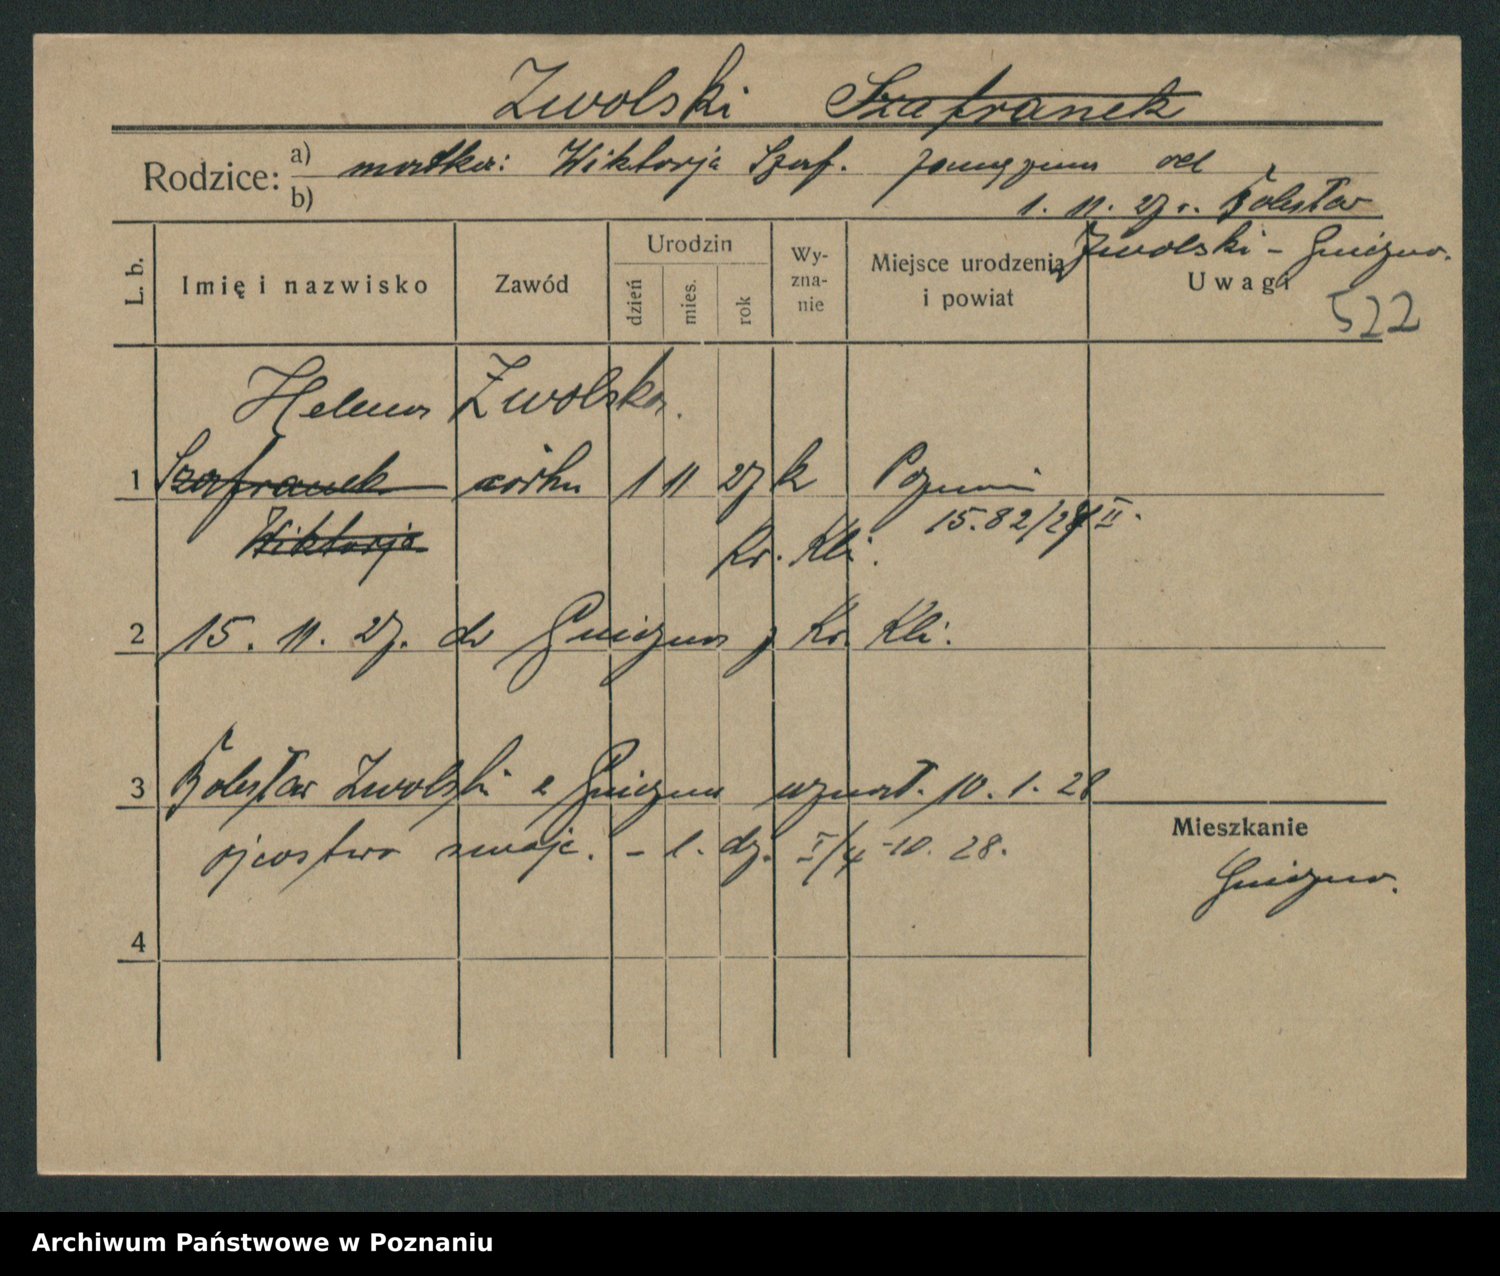 Zwolski Szafranek
Rodzice: a) matka: Wiktorja Szaf. od
b) 1. 11. 27 r. Bolesław
Zwolski - Gniezno.
L. b. Imię i nazwisko Zawód Urodzin dzień mies. rok Wyznanie Miejsce urodzenia i powiat Uwagi
522
Helena Zwolska.
1 Szafranek córka 1 11 27 k Poznań
15.82/28 II.
Wiktorja Kr. Kli.
2 15. 11. 27. do Gniezna z Kr. Kli.
3 Bolesław Zwolski z Gniezna uznał. 10. 1. 28
Mieszkanie
ojcostwo swoje. - l. dz. I/4-10. 28.
Gniezno.
4
Archiwum Państwowe w Poznaniu